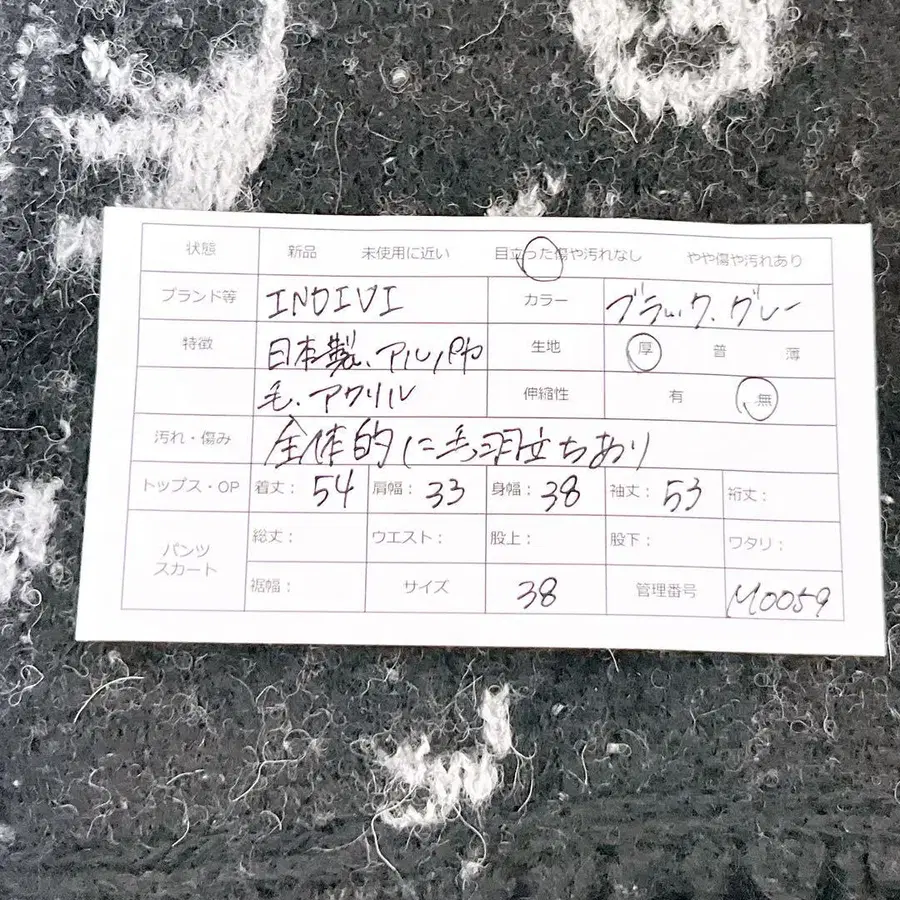 状態 新品 未使用に近い 目立った傷や汚れなし やや傷や汚れあり
ブランド等 INDIVI カラー ブラック、グレー
特徴 日本製、アルパカ 生地 厚 普 薄
毛、アクリル 伸縮性 有 無
汚れ・傷み 全体的に毛羽立ちあり
トップス・OP 着丈： 54 肩幅： 33 身幅： 38 袖丈： 53 裄丈：
パンツ スカート 総丈： ウエスト： 股上： 股下： ワタリ：
裾幅： サイズ 38 管理番号 M0059